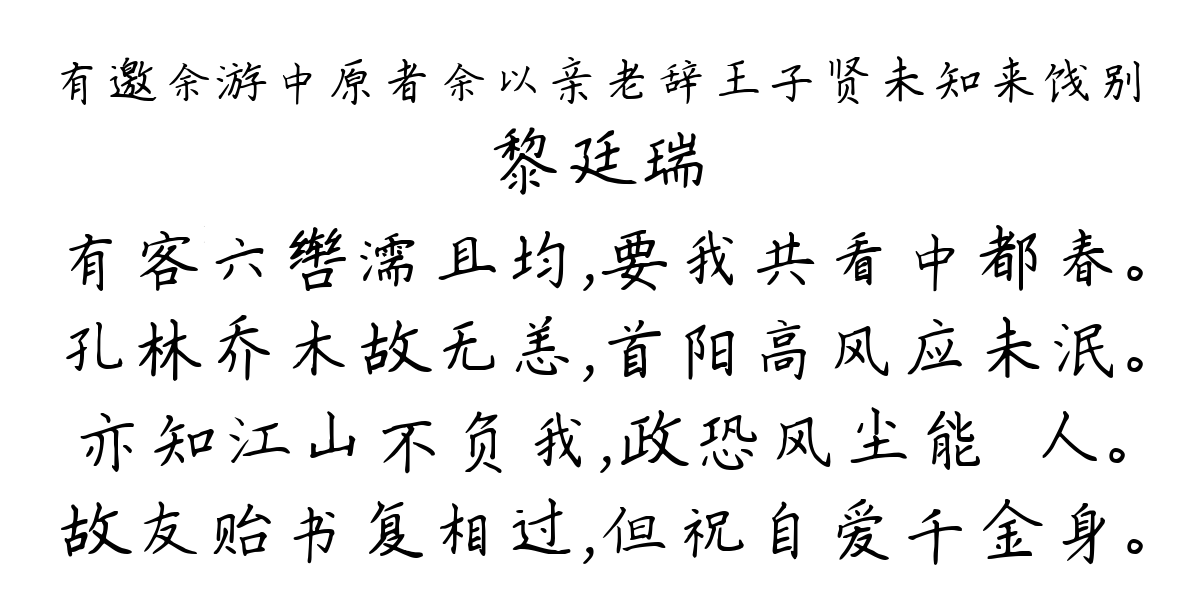 有邀余游中原者余以亲老辞王子贤未知来饯别
黎廷瑞
有客六辔濡且均,要我共看中都春。
孔林乔木故无恙,首阳高风应未泯。
亦知江山不负我,政恐风尘能 人。
故友贻书复相过,但祝自爱千金身。